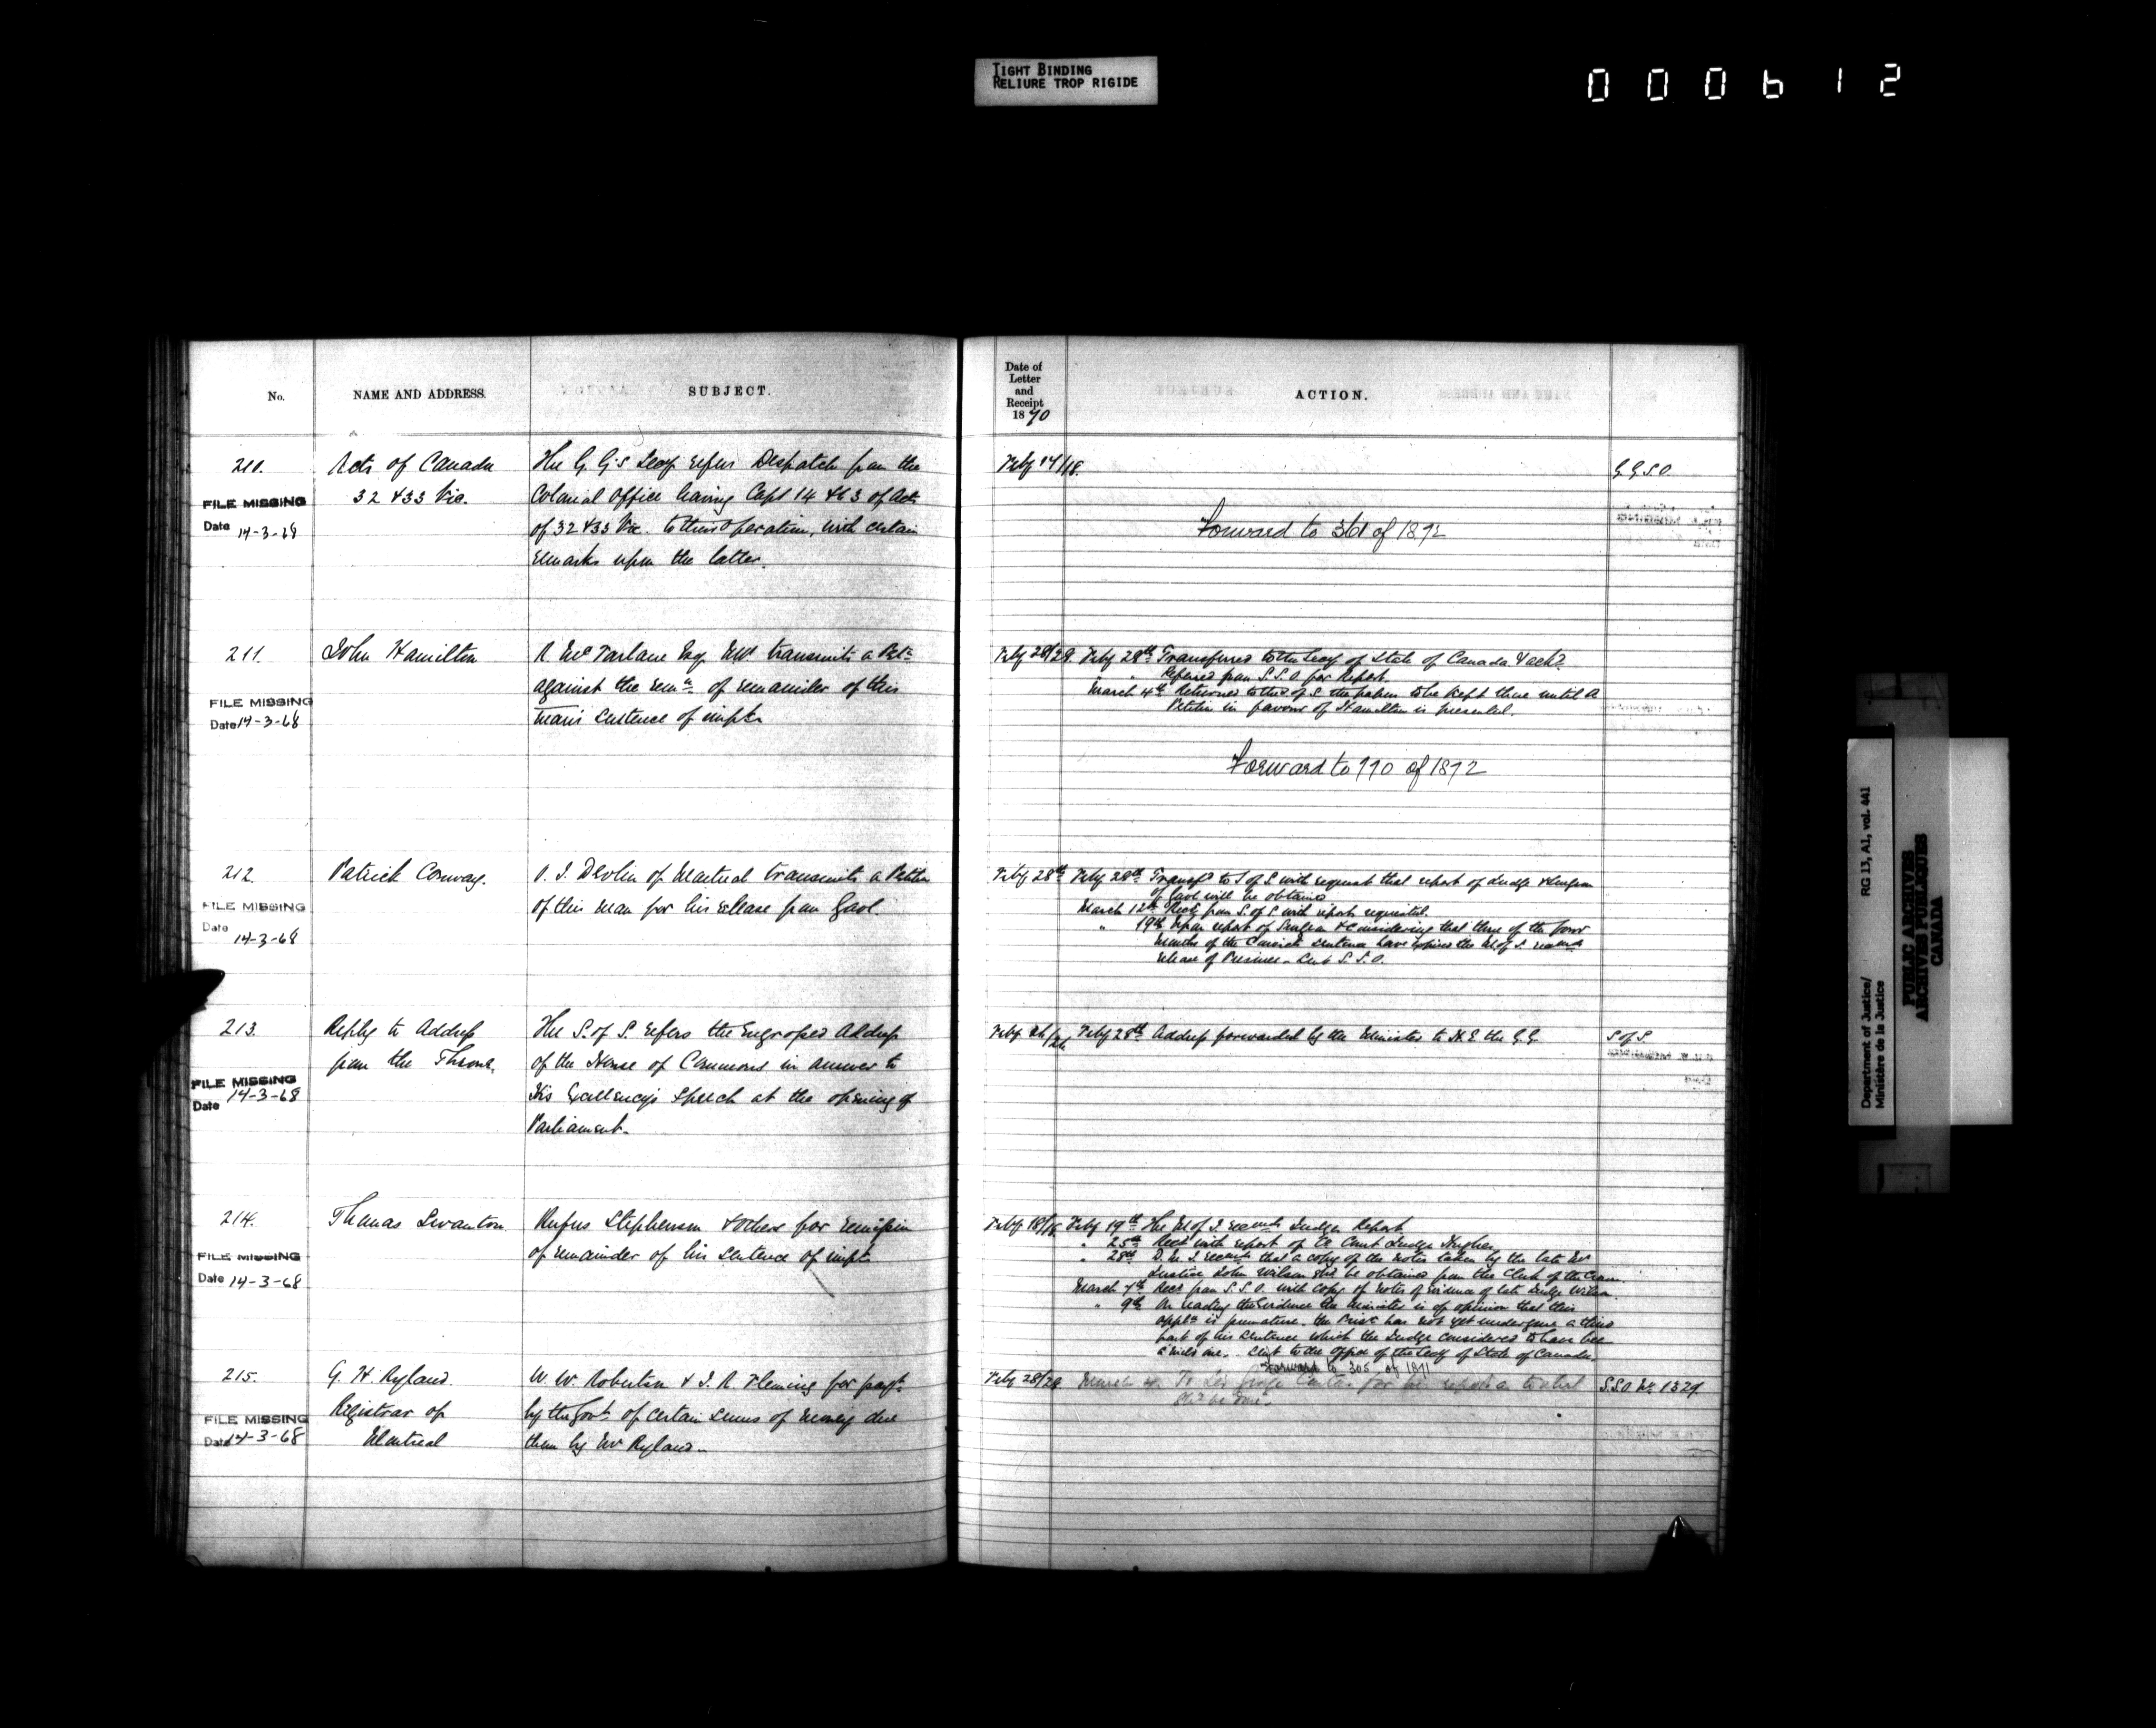 TIGHT BINDING
RELIURE TROP RIGIDE
000612
No.
NAME AND ADDRESS.
SUBJECT.
210.
Acts of Canada
32 & 33 Vic.
FILE MISSING
Date 14-3-68
The G. G's Secy refers Despatch from the
Colonial Office leaving Capt 14 & 63 of Acts
of 32 & 33 Vic. to their operation, with certain
remarks upon the latter.
211.
John Hamilton
FILE MISSING
Date 14-3-68
R. McFarlane Esq. transmits a Petn
against the remn of remainder of this
man's sentence of impt.
212.
Patrick Conway.
FILE MISSING
Date
14-3-68
Devlin of Montreal transmits a Petition
of this man for his release from Gaol.
213.
Reply to Address
from the Throne.
FILE MISSING
Date 14-3-68
The S. of S. refers the Engrossed Address
of the House of Commons in answer to
His Excellency's Speech at the opening of
Parliament.
214.
Thomas Swanton
FILE MISSING
Date 14-3-68
Rufus Stephenson & others for remission
of remainder of his sentence of impt
215.
G. H. Ryland.
Registrar of
Montreal
FILE MISSING
Date 14-3-68
W. W. Robertson & J. R. Fleming for payt
by the Govt of certain sums of money due
them by Mr Ryland.
Date of
Letter
and
Receipt
1870
ACTION.
Feby 17/18.
G.G.S.O.
Forward to 361 of 1872
Feby 28/28.
Feby 28th Transferred to the Secy of State of Canada & ackd.
" " Referred from S.S.O. for Report.
March 4th Returned to the S of S. the papers to be kept there until a
Petition in favour of Hamilton is presented.
Forward to 770 of 1872
Feby 28th
Feby 28th Transfd to S of S with request that report of Judge & Surgeon
of Gaol will be obtained
March 12th Recd from S. of S. with reports requested.
" 19th Upon report of Surgeon & considering that three of the four
months of the Convict's sentence have expired the M. of J. recomds
release of Prisoner. Sent S.S.O.
Feby 26/26
Feby 28th Address forwarded by the Minister to H.E. the G.G.
S of S.
Feby 18/18
Feby 19th The M. of J. recomds Judge's Report
" 25th Recd with report of Co Court Judge Hughes
" 28th D.M.J. recomds that a copy of the notes taken by the late Mr
Justice John Wilson shd be obtained from the Clerk of the Crown.
March 7th Recd from S.S.O. with copy of notes of Evidence of late Judge Wilson.
" 9th On reading the Evidence the Minister is of opinion that this
appln is premature. The Prisr has not yet undergone a third
part of his sentence which the Judge considered to have been
a mild one. Sent to the Office of the Secy of State of Canada.
Forward to 305 of 1871
Feby 28/28
March 4. To Sir George Cartier for his report as to what
shd be done.
S.S.O. No. 1329.
Department of Justice/
Ministère de la Justice
RG 13, A1, vol. 441
PUBLIC ARCHIVES
ARCHIVES PUBLIQUES
CANADA